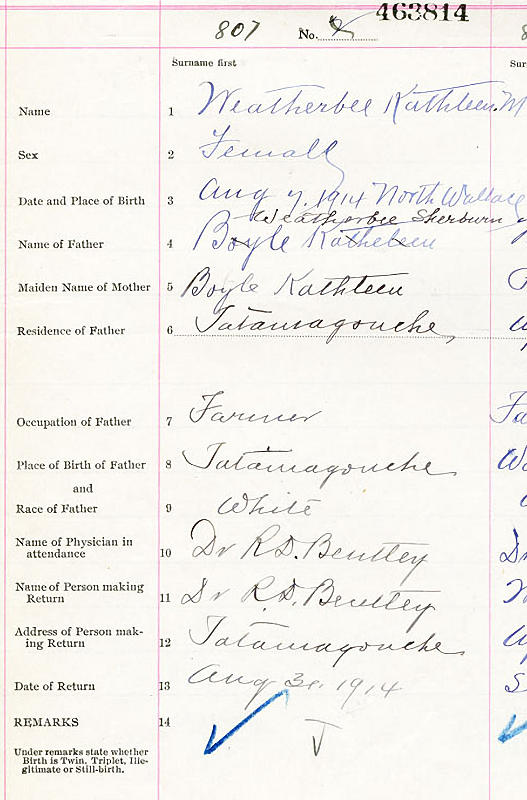 463814
807 No.
Surname first Sur
Name 1 Weatherbee Kathleen M
Sex 2 Female
Date and Place of Birth 3 Aug 7, 1914 North Wallace
Weatherbee Sherburn
Name of Father 4 Boyle Katheleen
Maiden Name of Mother 5 Boyle Kathleen
Residence of Father 6 Tatamagouche,
Occupation of Father 7 Farmer Fa
Place of Birth of Father 8 Tatamagouche Wa
and
Race of Father 9 White
Name of Physician in
attendance 10 Dr R.D. Bentley Dr
Name of Person making
Return 11 Dr R.D. Bentley
Address of Person mak-
ing Return 12 Tatamagouche
Date of Return 13 Aug 31, 1914 S
REMARKS 14
Under remarks state whether
Birth is Twin, Triplet, Ille-
gitimate or Still-birth.